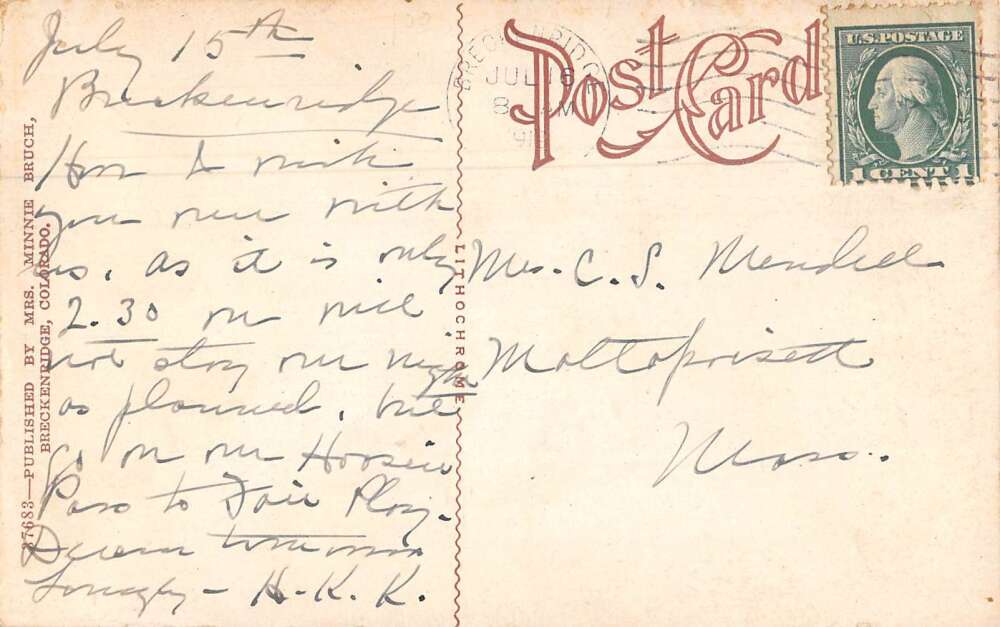 July 15th
Breckenridge
How I wish
you were with
us, as it is only
2.30 we will
not stay over night
as planned, but
go on over Hoosier
Pass to Fair Play.
Denver tomorrow
Lovingly - H. K. K.
37683—PUBLISHED BY MRS. MINNIE BRUCH,
BRECKENRIDGE, COLORADO.
LITHOCHROME
Post Card
BRECKENRIDGE
JUL 16
8 M
U.S. POSTAGE
1 CENT 1
Mrs. C. S. Mendell
Mattapoisett
Mass.